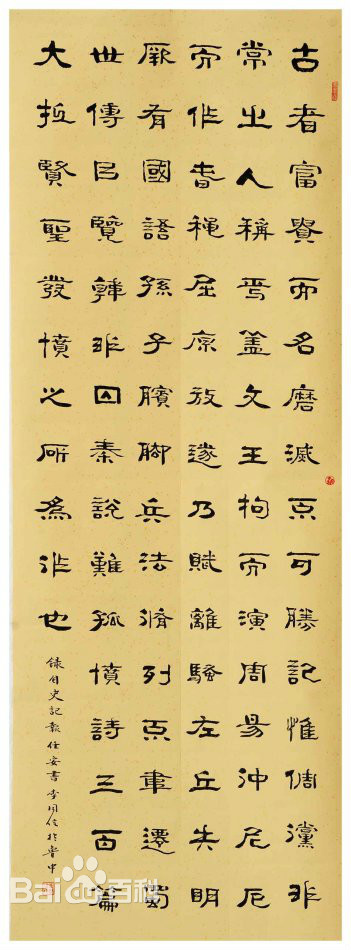 古者富貴而名磨滅不可勝記惟倜儻非
常之人稱焉蓋文王拘而演周易仲尼厄
而作春秋屈原放逐乃賦離騷左丘失明
厥有國語孫子臏腳兵法脩列不韋遷蜀
世傳呂覽韓非囚秦說難孤憤詩三百篇
大抵賢聖發憤之所為作也
錄自史記報任安書李於晉中
Bai百科